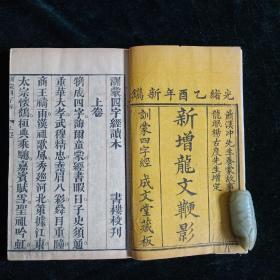 光緒乙酉年新鐫
蕭漢冲先生養蒙故事
龍眠楊古度先生增定
新增龍文鞭影
訓蒙四字經 成文堂藏板
訓蒙四字經讀本
上卷 書樓校刊
粗成四字誨爾童蒙經書暇日子史須通
重華大孝武穆精忠堯眉八彩舜目重瞳
商王禱雨漢祖歌風秀巡河北策據江東
太宗懷鷂桓典乘驄嘉賓賦雪聖祖吟虹